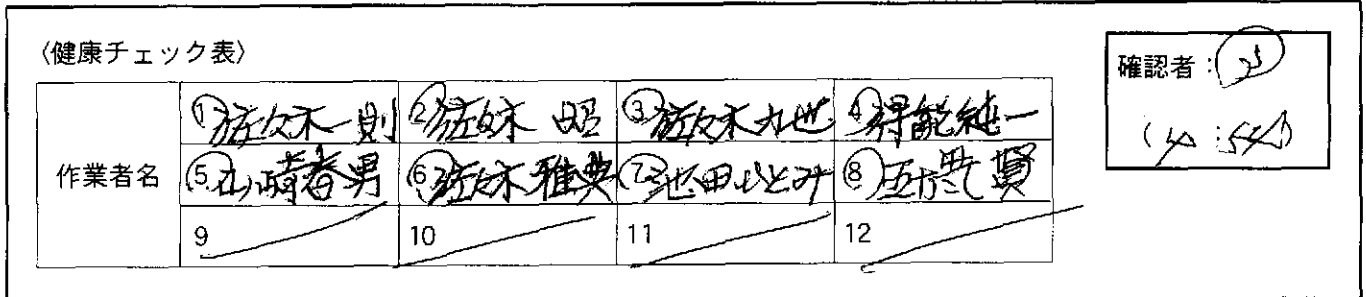 〈健康チェック表〉
確認者：
作業者名
①佐々木一則 ②佐々木 昭 ③佐々木九也 ④得能純一
⑤山崎春男 ⑥佐々木雅典 ⑦池田ひとみ ⑧五十嵐 賢
9 10 11 12